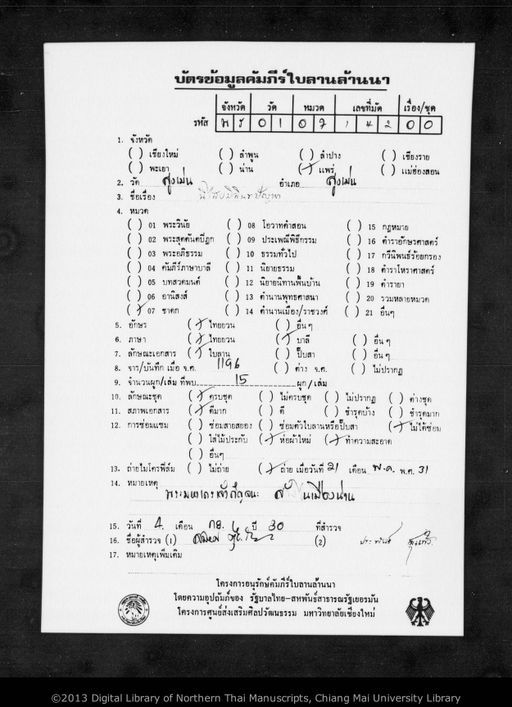 บัตรข้อมูลคัมภีร์ใบลานล้านนา
จังหวัด วัด หมวด เลขที่มัด เรื่อง/ชุด
รหัส พ ร 0 1 0 7 1 4 2 0 0
1. จังหวัด
( ) เชียงใหม่ ( ) ลำพูน ( ) ลำปาง ( ) เชียงราย
( ) พะเยา ( ) น่าน (/) แพร่ ( ) แม่ฮ่องสอน
2. วัด สูงเม่น อำเภอ สูงเม่น
3. ชื่อเรื่อง
4. หมวด
( ) 01 พระวินัย ( ) 08 โอวาทคำสอน ( ) 15 กฎหมาย
( ) 02 พระสุตตันตปิฎก ( ) 09 ประเพณีพิธีกรรม ( ) 16 ตำราอักษรศาสตร์
( ) 03 พระอภิธรรม ( ) 10 ธรรมทั่วไป ( ) 17 กวีนิพนธ์ร้อยกรอง
( ) 04 คัมภีร์ภาษาบาลี ( ) 11 นิยายธรรม ( ) 18 ตำราโหราศาสตร์
( ) 05 บทสวดมนต์ ( ) 12 นิยายนิทานพื้นบ้าน ( ) 19 ตำรายา
( ) 06 อานิสงส์ ( ) 13 ตำนานพุทธศาสนา ( ) 20 รวมหลายหมวด
(/) 07 ชาดก ( ) 14 ตำนานเมือง/ราชวงศ์ ( ) 21 อื่นๆ
5. อักษร (/) ไทยยวน ( ) อื่น ๆ
6. ภาษา (/) ไทยยวน (/) บาลี ( ) อื่น ๆ
7. ลักษณะเอกสาร (/) ใบลาน ( ) ปั๊บสา ( ) อื่น ๆ
8. จาร/บันทึก เมื่อ จ.ศ. 1196 ( ) ต่าง จ.ศ. ( ) ไม่ปรากฏ
9. จำนวนผูก/เล่ม ที่พบ 15 ผูก/เล่ม
10. ลักษณะชุด (/) ครบชุด ( ) ไม่ครบชุด ( ) ไม่ปรากฏ ( ) ต่างชุด
11. สภาพเอกสาร (/) ดีมาก ( ) ดี ( ) ชำรุดบ้าง ( ) ชำรุดมาก
12. การซ่อมแซม ( ) ซ่อมสายสยอง ( ) ซ่อมตัวใบลานหรือปั๊บสา (/) ไม่ได้ซ่อม
( ) ใส่ไม้ประกับ (/) ห่อผ้าใหม่ (/) ทำความสะอาด
( ) อื่นๆ
13. ถ่ายไมโครฟิล์ม ( ) ไม่ถ่าย (/) ถ่าย เมื่อวันที่ 21 เดือน พ.ค. พ.ศ. 31
14. หมายเหตุ
15. วันที่ 4 เดือน กย. ปี 30 ที่สำรวจ
16. ชื่อผู้สำรวจ (1) (2)
17. หมายเหตุเพิ่มเติม
โครงการอนุรักษ์คัมภีร์ใบลานล้านนา
โดยความอุปถัมภ์ของ รัฐบาลไทย-สหพันธ์สาธารณรัฐเยอรมัน
โครงการศูนย์ส่งเสริมศิลปวัฒนธรรม มหาวิทยาลัยเชียงใหม่
©2013 Digital Library of Northern Thai Manuscripts, Chiang Mai University Library